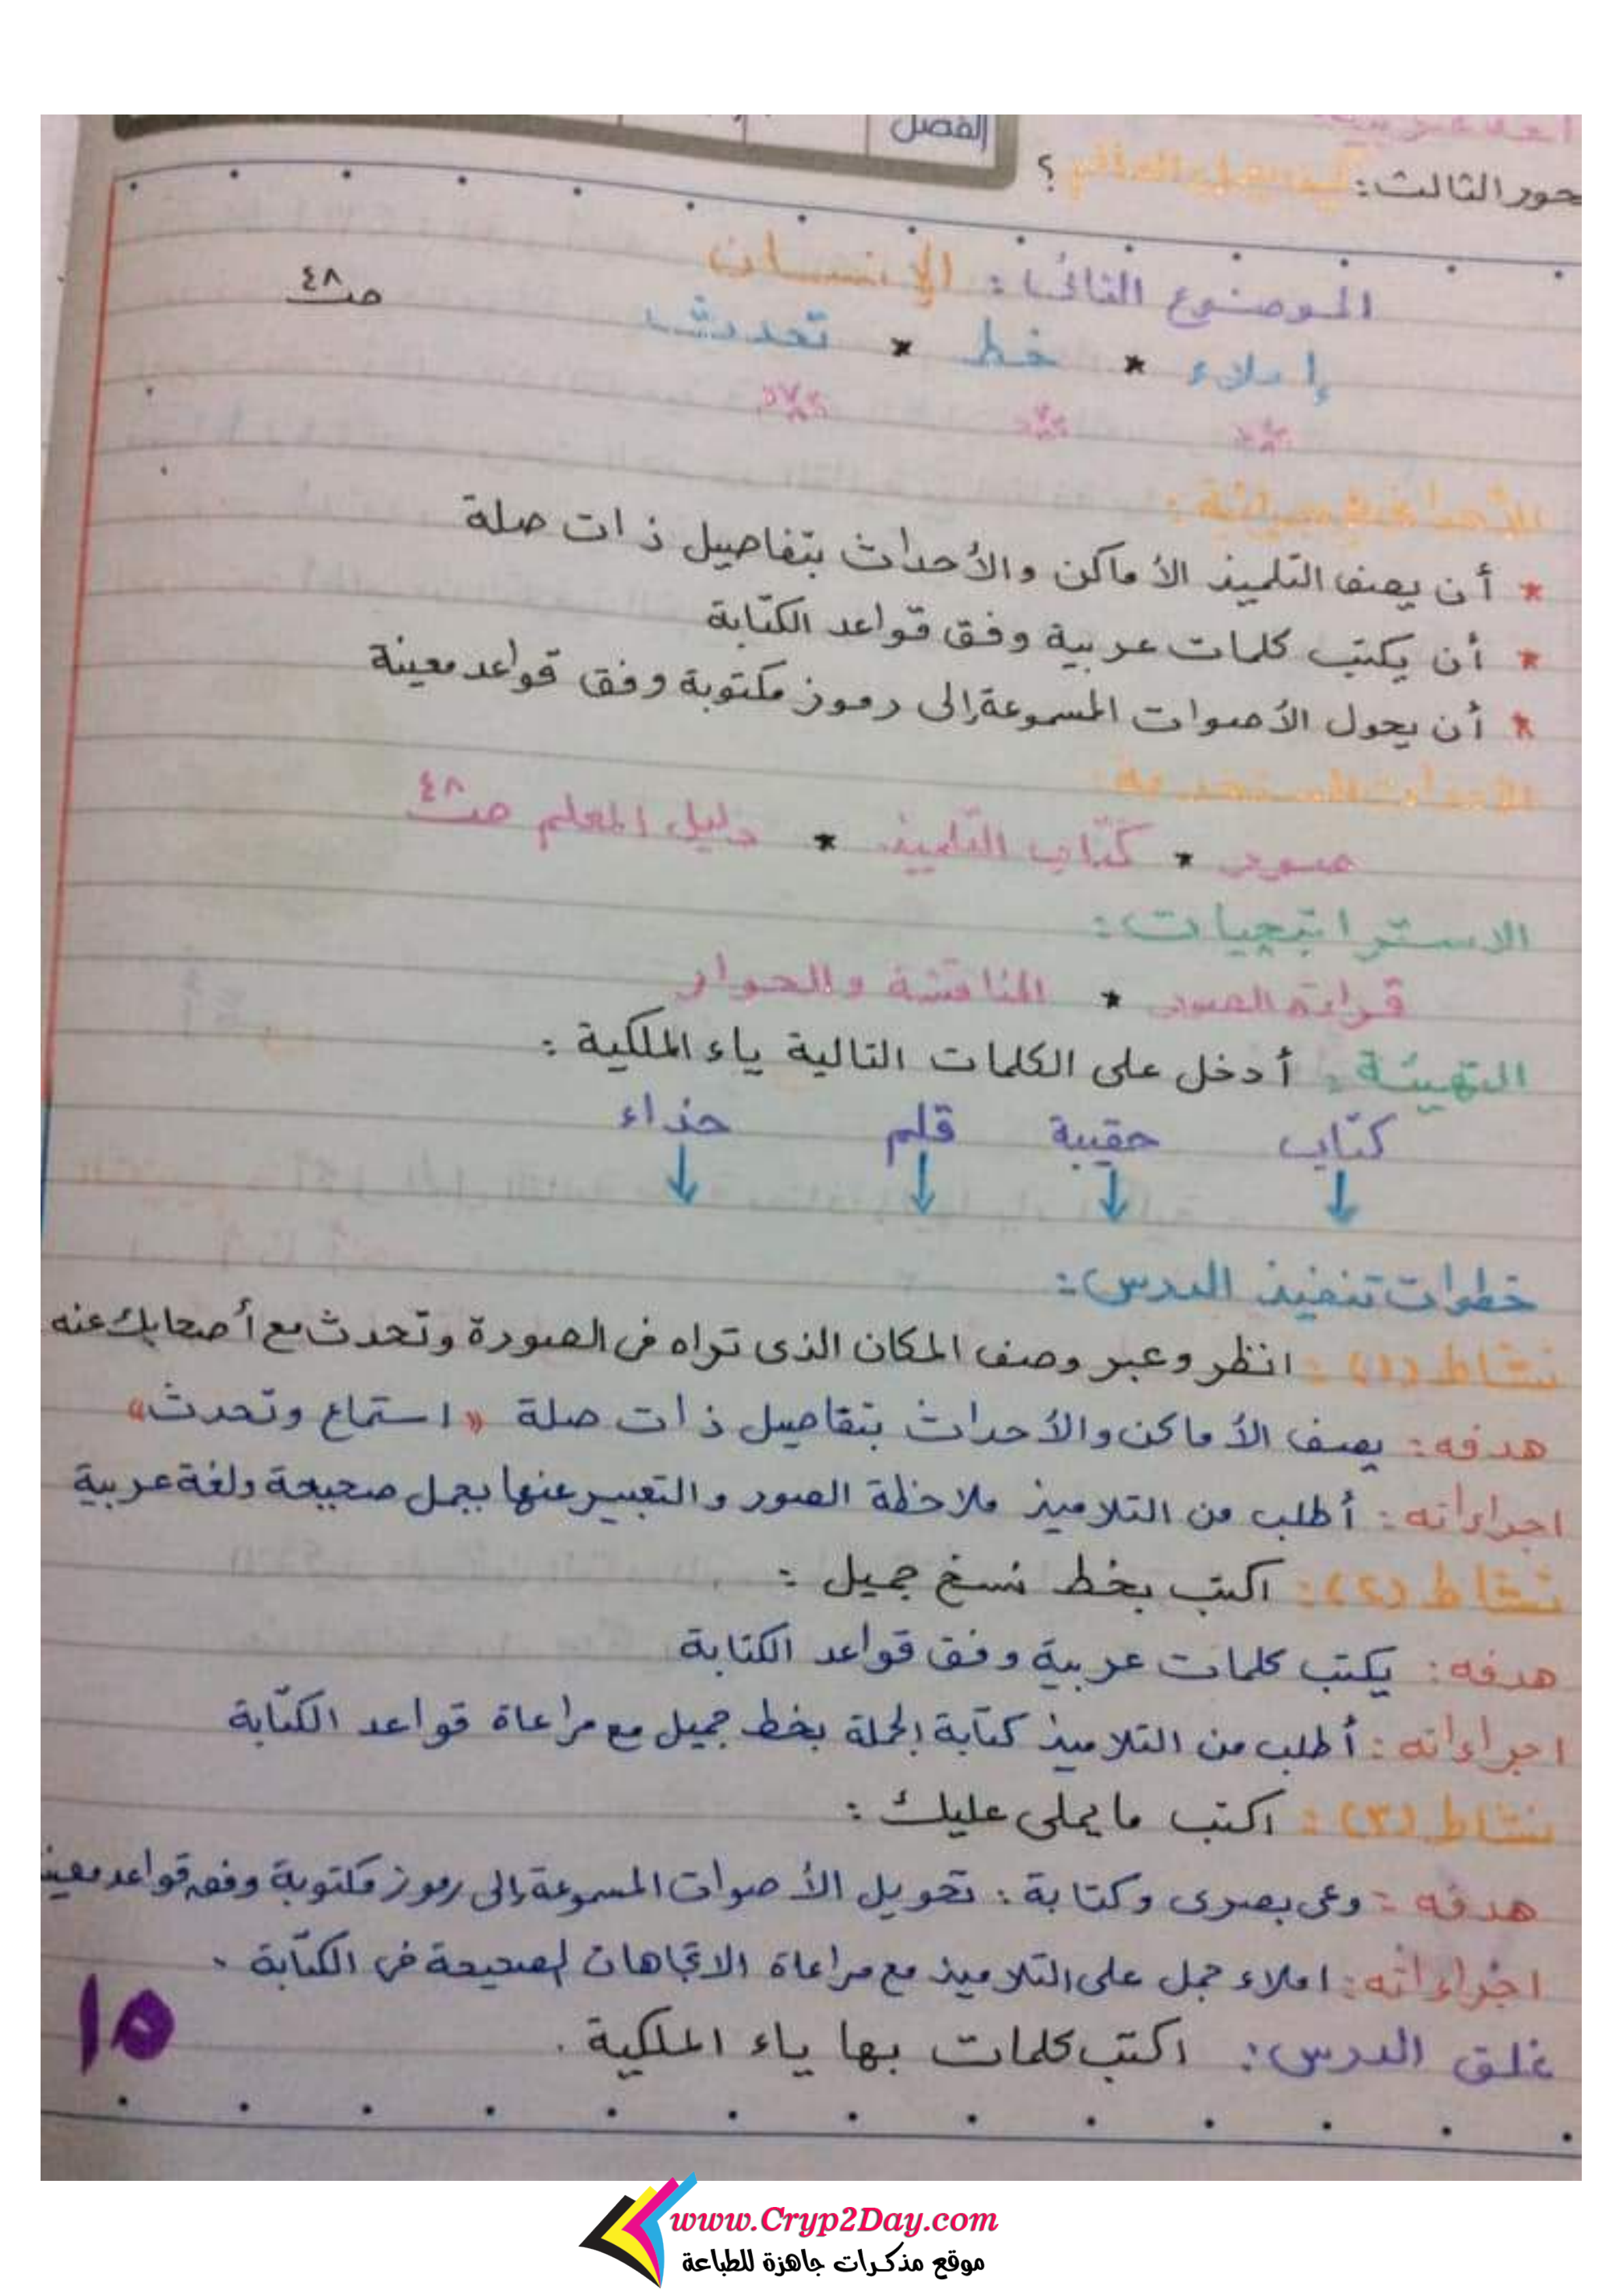 الفصل
حور الثالث: كيف يعمل العالم ؟
الموضوع الثانى: الإنسان
ص٤٨
إملاء * خط * تحدث
الأهداف الإجرائية:
* أن يصف التلميذ الأماكن والأحداث بتفاصيل ذات صلة
* أن يكتب كلمات عربية وفق قواعد الكتابة
* أن يحول الأصوات المسموعة إلى رموز مكتوبة وفق قواعد معينة
الأدوات المستخدمة:
صور * كتاب التلميذ * دليل المعلم ص٤٨
الاستراتيجيات:
قراءة الصور * المناقشة والحوار
التهيئة: أدخل على الكلمات التالية ياء الملكية:
كتاب حقيبة قلم حذاء
خطوات تنفيذ الدرس:
نشاط (١): انظر وعبر وصف المكان الذى تراه فى الصورة وتحدث مع أصحابك عنه
هدفه: يصف الأماكن والأحداث بتفاصيل ذات صلة «استماع وتحدث»
اجراءاته: أطلب من التلاميذ ملاحظة الصور والتعبير عنها بجمل صحيحة ولغة عربية
نشاط (٢): اكتب بخط نسخ جميل:
هدفه: يكتب كلمات عربية وفق قواعد الكتابة
اجراءاته: أطلب من التلاميذ كتابة الجملة بخط جميل مع مراعاة قواعد الكتابة
نشاط (٣): اكتب ما يملى عليك:
هدفه: وعى بصرى وكتابة: تحويل الأصوات المسموعة إلى رموز مكتوبة وفق قواعد معين
اجراءاته: املاء جمل على التلاميذ مع مراعاة الاتجاهات الصحيحة فى الكتابة.
غلق الدرس: اكتب كلمات بها ياء الملكية.
١٥
www.Cryp2Day.com
موقع مذكرات جاهزة للطباعة